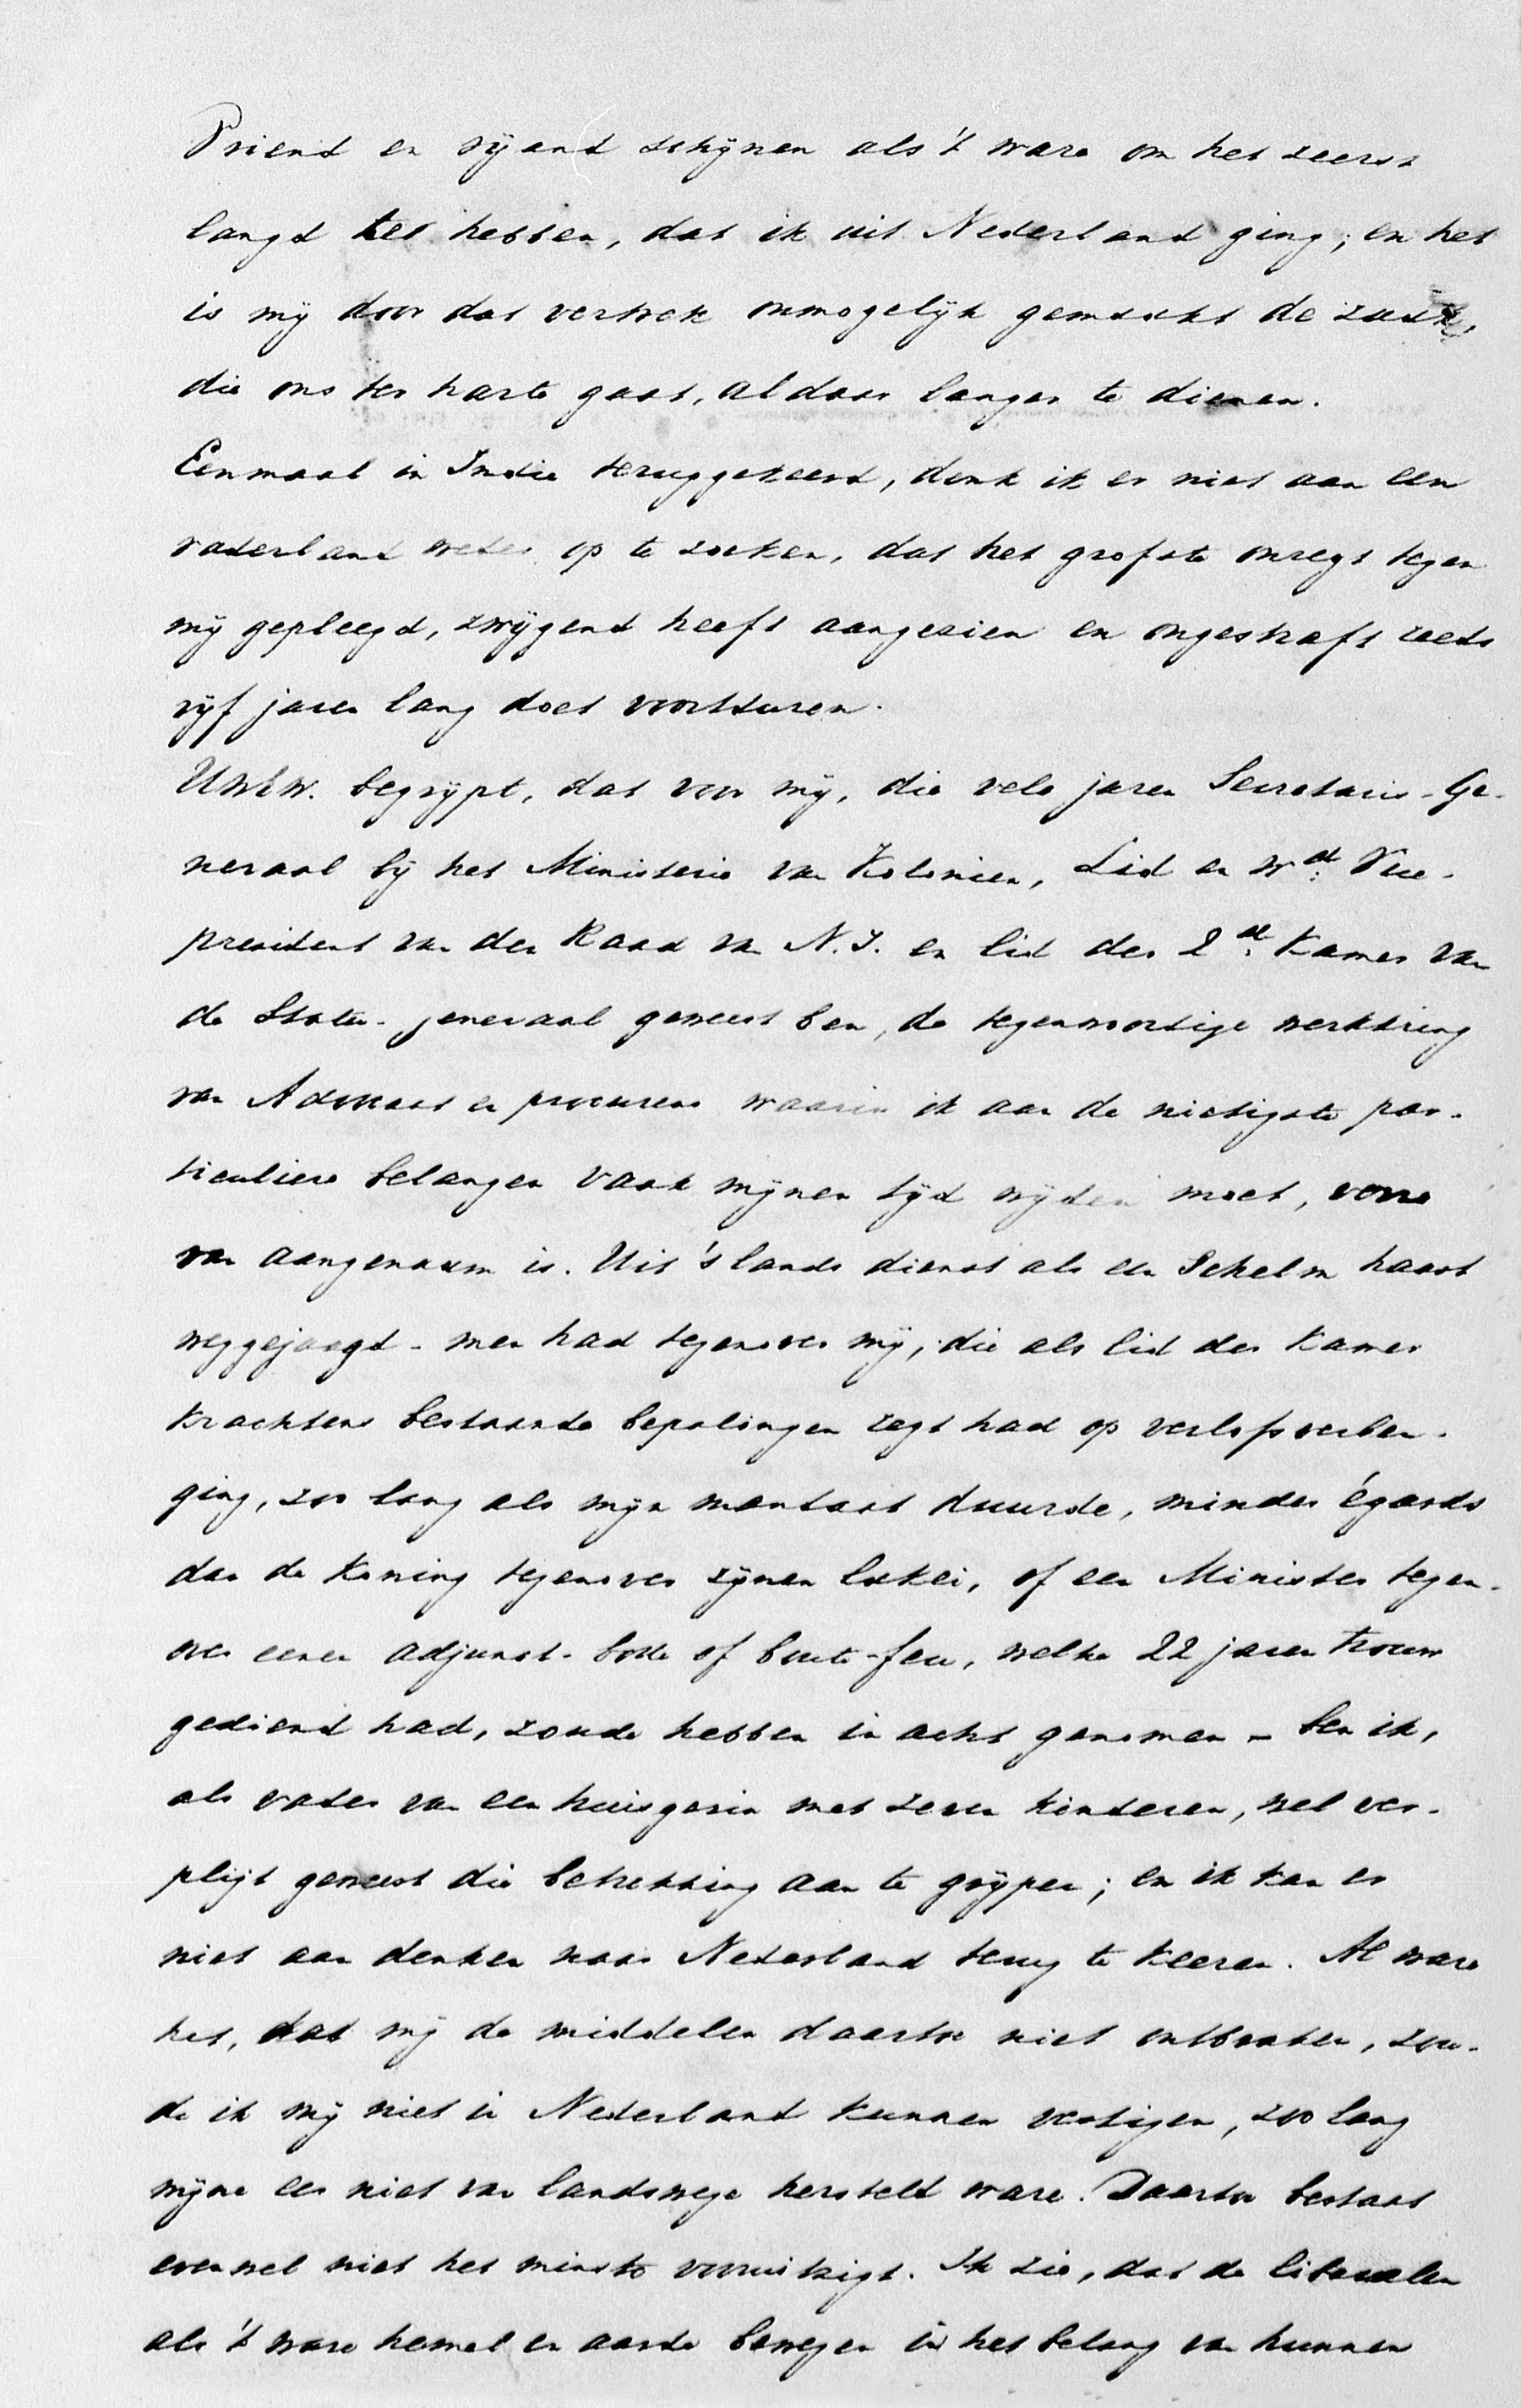 Vriend en vijand schijnen als 't ware om het zeerst
langd te hebben, dat ik uit Nederland ging; en het
is mij door dat vertrek onmogelijk gemaakt de zaak,
die ons ter harte gaat, aldaar langer te dienen.
Eenmaal in Indie teruggekeerd, denk ik er niet aan een
vaderland weder op te zoeken, dat het grofste onregt tegen
mij gepleegd, zwijgend heeft aangezien en ongestraft reeds
vijf jaren lang doet voortduren.
UWEW. begrijpt, dat voor mij, die vele jaren Secretaris-Ge-
neraal bij het Ministerie van Kolonien, Lid en Wd. Vice-
president van den Raad van N.I. en lid der 2de Kamer van
de Staten-jeneraal geweest ben, de tegenwoordige werkkring
van Advokaat en procureur waarin ik aan de nietigste par-
ticuliere belangen vaak mijnen tijd wijden moet, verre
van aangenaam is. Uit 's lands dienst als een Schelm haast
weggejaagd - men had tegenover mij, die als lid der Kamer
krachtens bestaande bepalingen regt had op verlofsverlen-
ging, zoo lang als mijn mandaat duurde, minder égards
dan de Koning tegenover zijnen lakei, of een Minister tegen-
over eenen adjunct-bode of boute-feu, welke 22 jaren trouw
gediend had, zoude hebben in acht genomen - ben ik,
als vader van een huisgezin met zeven kinderen, wel ver-
pligt geweest die betrekking aan te grijpen; en ik kan er
niet aan denken naar Nederland terug te keeren. Al ware
het, dat mij de middelen daartoe niet ontbraken, zou-
de ik mij niet in Nederland kunnen vestigen, zoo lang
mijne eer niet van landswege hersteld ware. Daartoe bestaat
evenwel niet het minste vooruitzigt. Ik zie, dat de liberalen
als 't ware hemel en aarde bewegen in het belang van hunnen